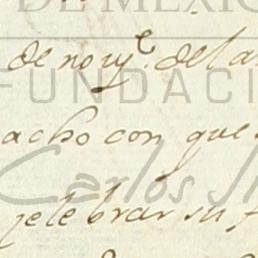 DE MÉXICO
de nov.e del a
FUNDACI
acho con que
Carlos Sl
zelebrar su f